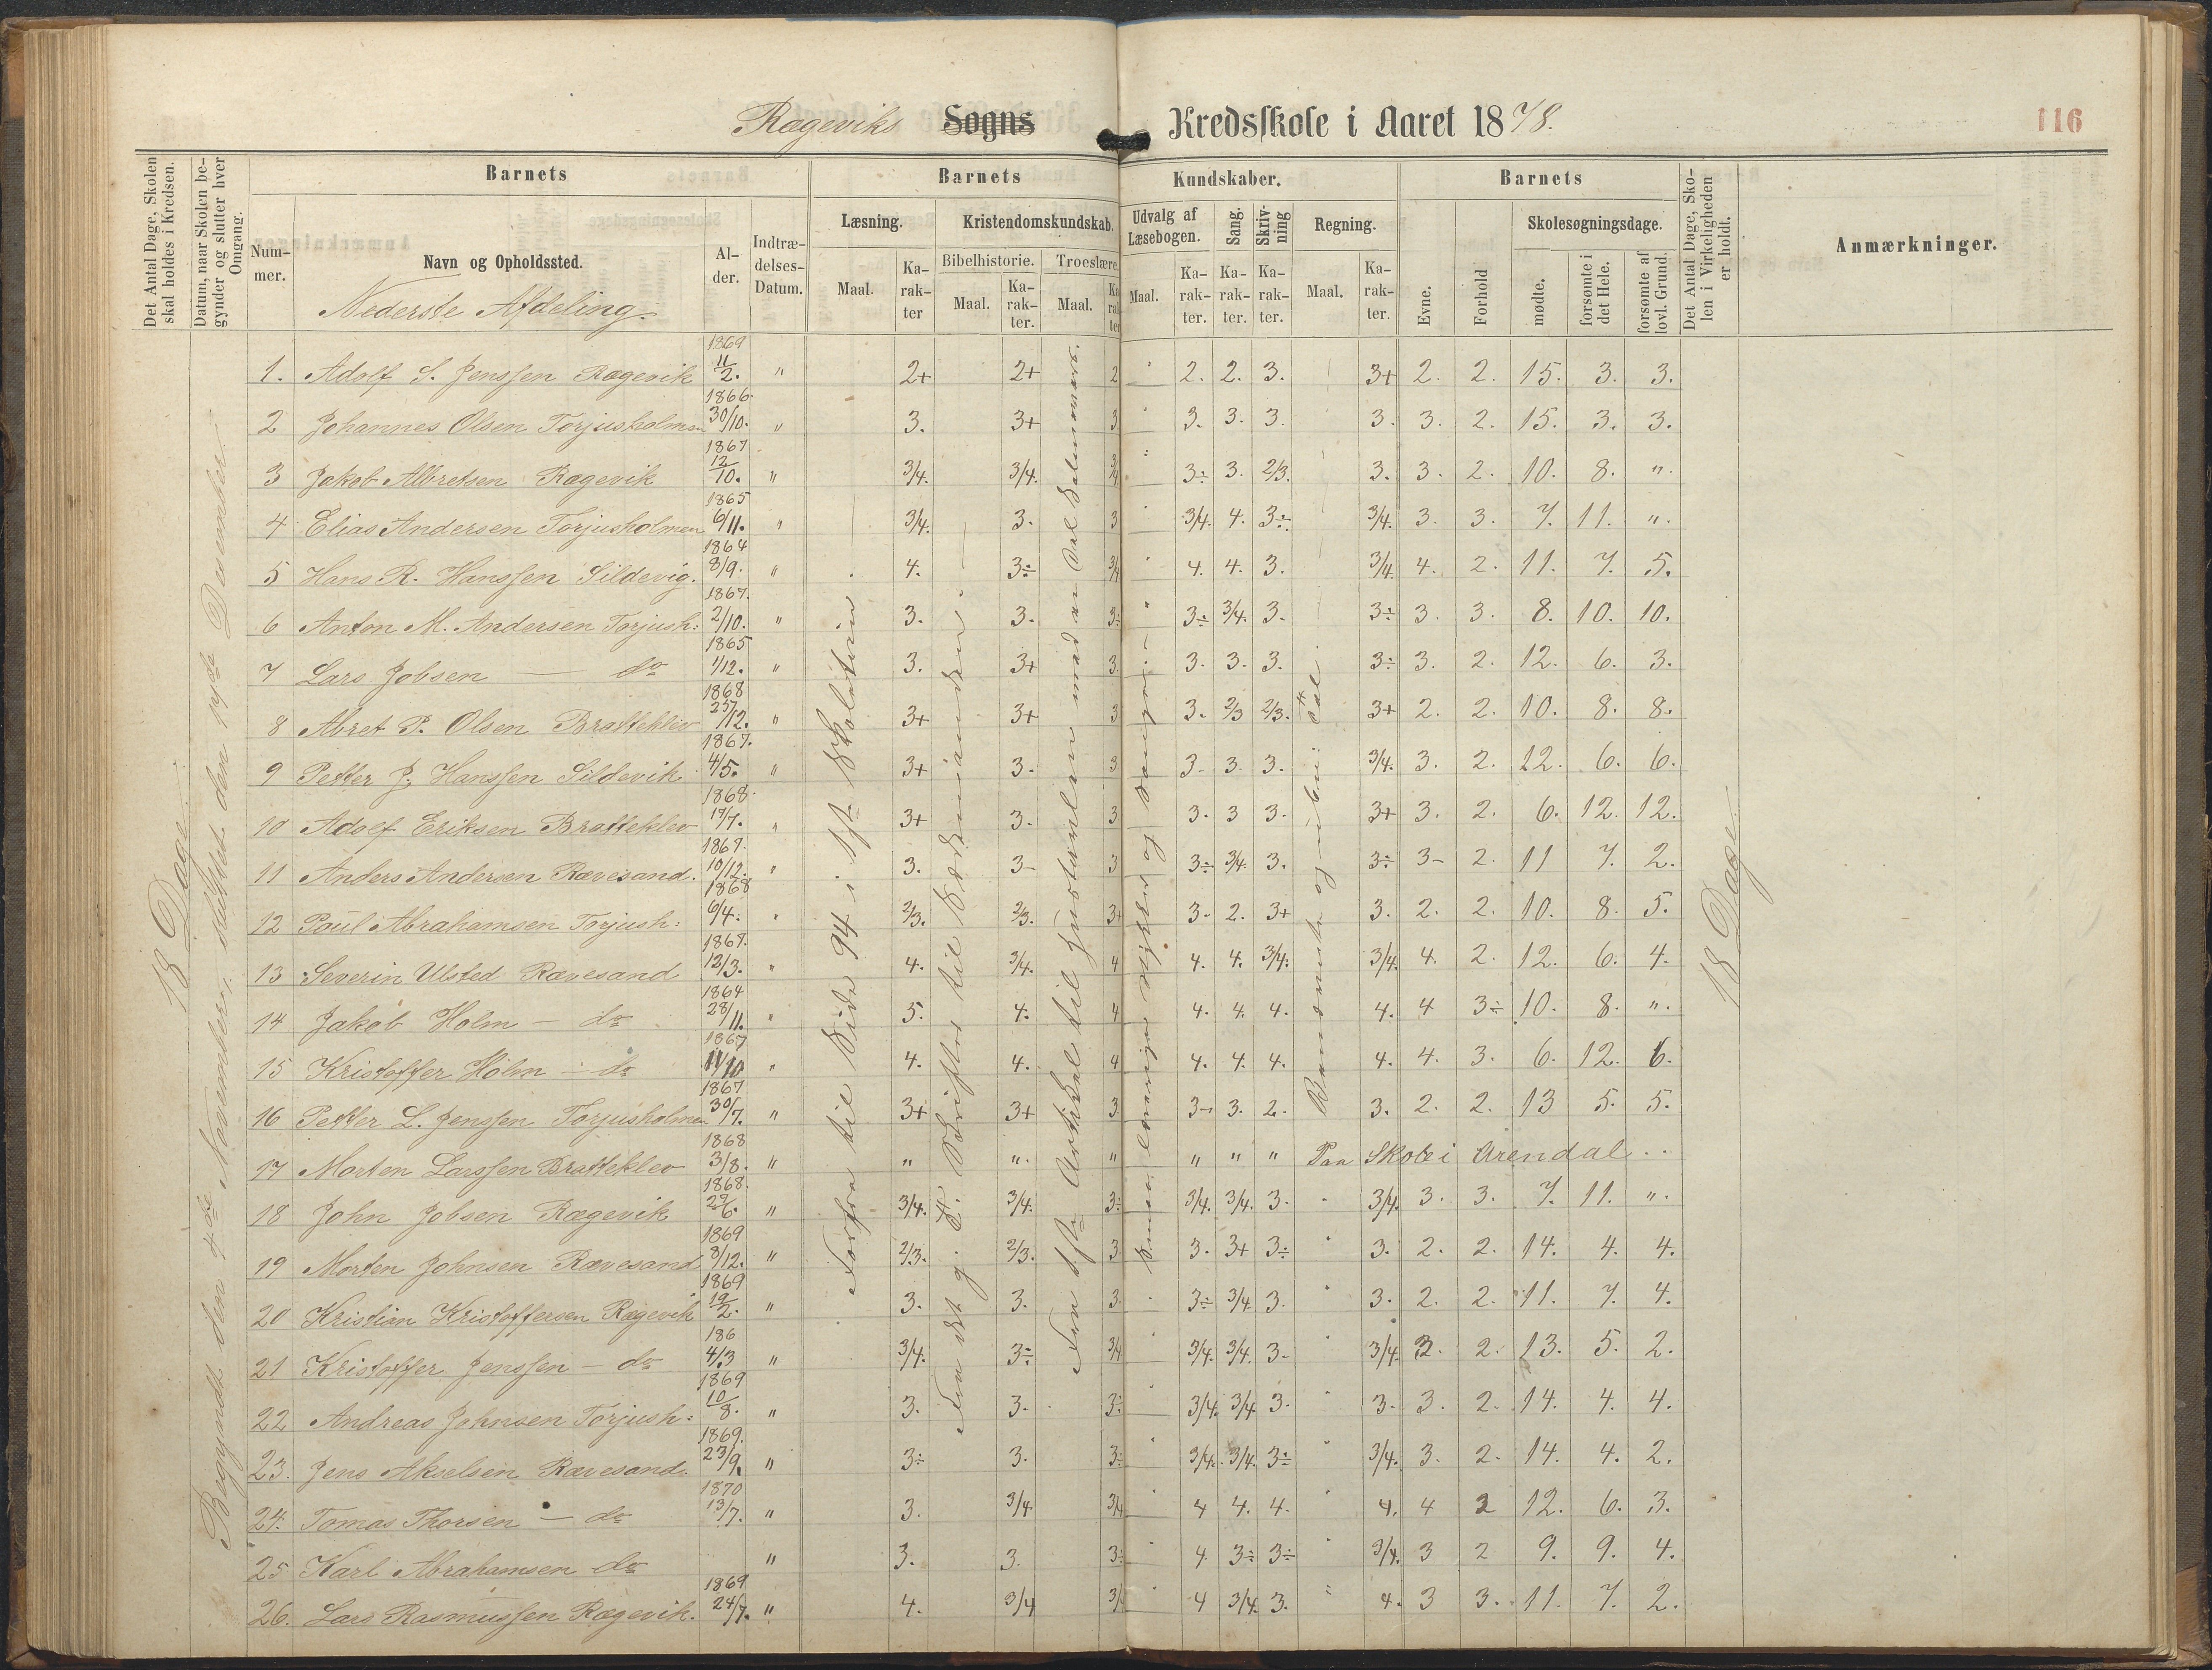 Rægeviks Sogns Kredsskole i Aaret 1878.
116
Det Antal Dage, Skolen skal holdes i Kredsen.
Datum, naar Skolen begynder og slutter hver Omgang.
Barnets
Barnets
Kundskaber.
Barnets
Det Antal Dage, Skolen i Virkeligheden er holdt.
Anmærkninger.
Nummer.
Navn og Opholdssted.
Alder.
Indtrædelses-Datum.
Læsning.
Kristendomskundskab.
Udvalg af Læsebogen.
Sang.
Skrivning
Regning.
Skolesøgningsdage.
Bibelhistorie.
Troeslære.
Maal.
Karakter
Maal.
Karakter.
Maal.
Karakter
Maal.
Karakter.
Karakter.
Karakter.
Maal.
Karakter.
Evne.
Forhold
mødte.
forsømte i det Hele.
forsømte af lovl. Grund.
Nederste Afdeling.
18 Dage.
Begyndt den 4de November, sluttet den 19de December.
Forfra til Side 94 i 1ste Skoletrin.
18 Dage.
1. Adolf S. Jenssen Rægevik 1869 11/2. " 2+ 2+ 2 " 2. 2. 3. 3+ 2. 2. 15. 3. 3.
2 Johannes Olsen Torjusholmen 1866 30/10. " 3. 3+ 3 " 3. 3. 3. 3. 3. 2. 15. 3. 3.
3 Jakob Albretsen Rægevik 1867 12/10. " 3/4. 3/4. 3/4 " 3÷ 3. 2/3. 3. 3. 2. 10. 8. ".
4 Elias Andersen Torjusholmen 1865 6/11. " 3/4. 3. 3 " 3/4. 4. 3÷ 3/4. 3. 3. 7. 11. ".
5 Hans R. Hanssen Sildevig. 1864 8/9. " 4. 3÷ 3/4 " 4. 4. 3. 3/4 4. 2. 11. 7. 5.
6 Anton M. Andersen Torjush: 1867. 2/10. " 3. 3. 3÷ " 3÷ 3/4. 3. 3÷ 3. 3. 8. 10. 10.
7 Lars Jobsen — do 1865 1/12. " 3. 3+ 3. 3. 3. 3. 3÷ 3. 2. 12. 6. 3.
8 Abret P. Olsen Bratteklev 1868 25/12. " 3+ 3+ 3 3. 2/3 2/3. 3+ 2. 2. 10. 8. 8.
9 Petter J. Hanssen Sildevik 1867. 4/5. " 3+ 3. 3 3. 3. 3. 3/4. 3. 2. 12. 6. 6.
10 Adolf Eriksen Bratteklev 1868. 17/7. " 3+ 3. 3 3. 3 3. 3+ 3. 2. 6. 12. 12.
11 Anders Andersen Rævesand. 1867. 10/12. " 3. 3- 3 3÷ 3/4. 3. 3÷ 3- 2. 11 7. 2.
12 Poul Abrahamsen Torjush: 1868 6/4. " 2/3. 2/3. 3+ 3- 2. 3+ 3. 2. 2. 10. 8. 5.
13 Severin Ulsted Rævesand 1867. 12/3. " 4. 3/4. 4 4. 4. 3/4. 3/4. 4. 2. 12. 6. 4.
14 Jakob Holm — do 1864 28/11. " 5. 4. 4 4. 4. 4. 4. 4 3÷ 10. 8. ".
15 Kristoffer Holm — do 1867 11/10 " 4. 4. 4 4. 4. 4. 4. 4. 3. 6. 12. 6.
16 Petter L. Jenssen Torjusholmen 1867 30/7. " 3+ 3+ 3. 3- 3. 2. 3. 2. 2. 13 5. 5.
17 Morten Larssen Bratteklev 1868 3/8. " " ". " " " " Paa Skole i Arendal..
18 John Jobsen Rægevik 1868. 29/6. " 3/4. 3/4. 3÷ 3/4. 3/4. 3. " 3/4. 3. 3. 7. 11. ".
19 Morten Johnsen Rævesand 1869 8/12. " 2/3. 2/3. 3. 3. 3+ 3÷ " 3. 2. 2. 14. 4. 4.
20 Kristian Kristoffersen Rægevik 1869 19/2. " 3. 3. 3. 3÷ 3/4 3. " 3. 2. 2. 11. 7. 4.
21 Kristoffer Jenssen — do 186 4/3 " 3/4. 3÷ 3/4 " 3/4. 3/4. 3. " 3/4. 3. 2. 13. 5. 2.
22 Andreas Johnsen Torjush: 1869 10/8. " 3. 3. 3÷ " 3/4. 3/4 3. " 3. 3. 2. 14. 4. 4.
23. Jens Akselsen Rævesand. 1869. 23/9. " 3÷ 3. 3÷ " 3/4. 3/4. 3÷ " 3/4. 3. 2. 14. 4. 2.
24. Tomas Thorsen — do 1870 13/7. " 3. 3/4. 3/4 " 4 4. 4. " 4. 4 2 12. 6. 3.
25 Karl Abrahamsen do " 3. 3. 3÷ " 4. 3÷ 3÷ " 3/4. 3 2 9. 9. 4.
26. Lars Rasmussen Rægevik. 1869 24/7. " 4. 3/4 3/4 " 4 3/4. 3. " 4. 3 3. 11. 7. 2.